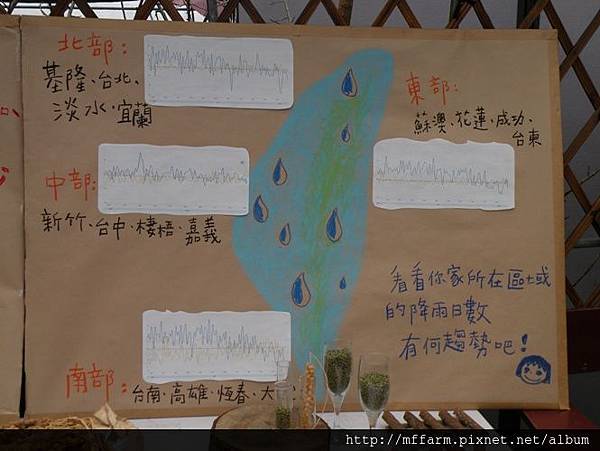 北部:
基隆、台北、
淡水、宜蘭
中部:
新竹、台中、棲梧、嘉義
南部:
台南、高雄、恆春、大
東部:
蘇澳、花蓮、成功、
台東
看看你家所在區域
的降雨日數
有何趨勢吧!
http://mffarm.pixnet.net/album